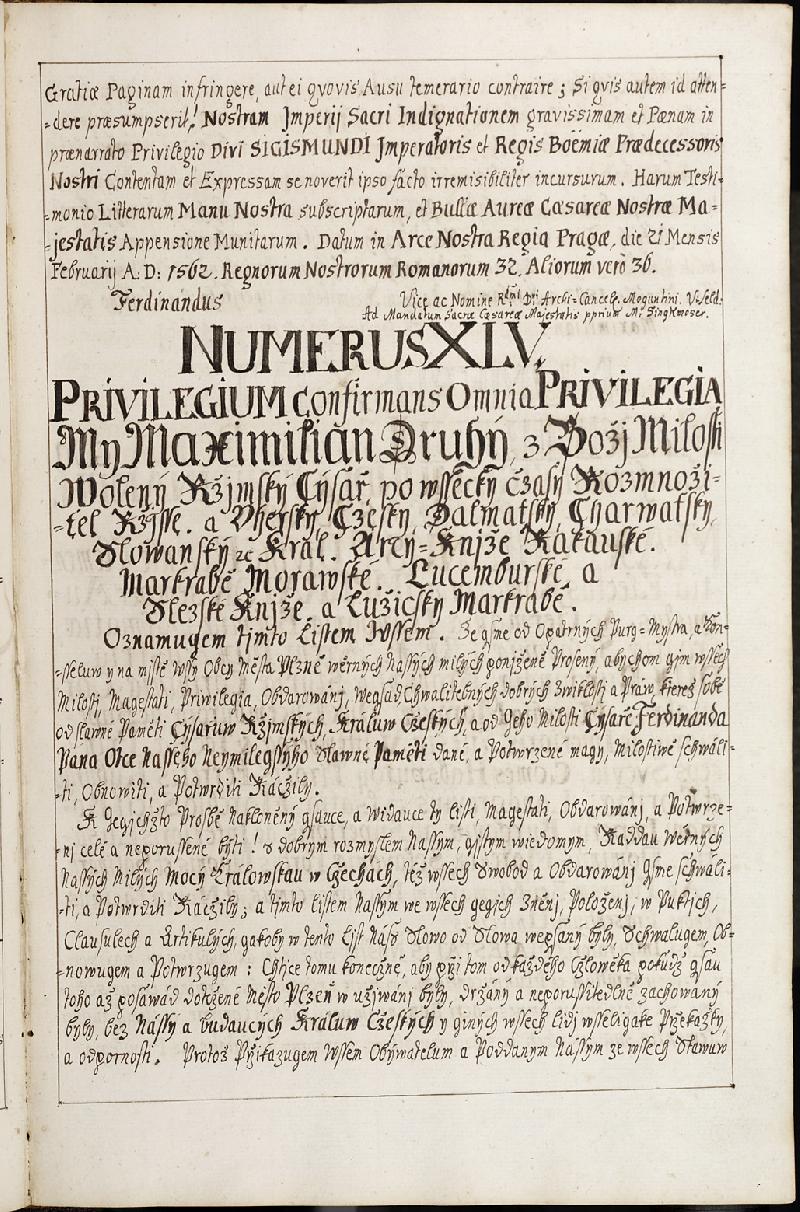 Gratiæ Paginam infringere, aut ei qvovis Ausu temerario contraire; Si qvis autem id atten-
-dere præsumpserit! Nostram Imperij Sacri Indignationem gravissimam et Pœnam in
prænarrato Privilegio Divi SIGISMUNDI Jmperatoris et Regis Boëmiæ Prædecessoris
Nostri Contentam et Expressam se noverit ipso facto irremisibiliter incursurum. Harum Testi-
-monio Litterarum Manu Nostra subscriptarum, et Bullæ Aureæ Cæsareæ Nostræ Ma-
-jestatis Appensione Munitarum. Datum in Arce Nostra Regia Pragæ, die 21 Mensis
Februarij A: D: 1562. Regnorum Nostrorum Romanorum 32. Aliorum verò 36.
Ferdinandus
Vice ac Nomine Rdmi Dni Archi-Cancell. Moguntini. V. Seld.
Ad Mandatum Sacræ Cæsareæ Majestatis pprium M. Singkmoser.
NUMERUS XLV.
PRIVILEGIUM Confirmans Omnia PRIVILEGIA
My Maximilian Druhý, z Božj Milosti
Wolený Ržjmský Cýsař, po wssecky časy Rozmnoži-
-tel Ržjsse, a Vherský, Czeský, Dalmatský, Charwatský,
Slowanský ꝛc Král. Arcy-Knjže Rakauské.
Markrabě Morawské. Lucemburské, a
Slezské Knjže, a Lužický Markrabě.
Oznamugem tjmto Listem Wssem. Že gsme od Opatrných Purg-Mystra, a Kon-
-sseluw y na mjstě wssý Obcy Města Plzně wěrných Nassých milých ponjženě Proseny, abychom gim wssech
Milostj, Magestati, Priwilegia, Obdarowánj, wegsad, Chwalitebných dobrých Zwiklostj a Práw, kterež sobě
od slawné Paměti Cýsařuw Ržjmských, Králuw Czeských, a od Geho Milosti Cýsaře Ferdinanda
Pana Otce Nassého Neymilegssýho Slawné Paměti dané, a Potwrzené magy, Milostiwě schwáli-
-ti, Obnowiti, a Potwrditi Ráčzily.
K Gegichžto Prosbě Nakloněný gsauce, a Widauce ty Listi, Magestati, Obdarowánj, a Potwrze-
-nj celé a neporussené býti! S dobrým rozmyslem Nassým, gistým wiedomym, Raddau Wěrných
Nassých Milých Mocý Královskau w Czechách, též wssech Swobod a Obdarowánj gsme schwáli-
-ti, a Potwrditi Ráčzily; a tjmto Listem Nassým we wssech gegich Zněnj, Položenj, w Punktjch,
Clausulech a Artikulých, gakoby w tento List Náss Slowo od Slowa wepsaný byly, Schwalugem, Ob-
-nowugem a Potwrzugem: Chtice tomu konečně, aby při tom od každého Czlowěka pokudž gsau
toho až posáwad dotčené Město Plzeň w užjwánj byly, držáný a neporussitedlně zachowaný
byly, bez Nássý a budaucých Králuw Czeských y giných wssech lidj wsseligaké Překažky,
a odpornosti. Protož Přikazugem Wssem Obýwatelum a Poddaným Nassým ze wssech Stawuw